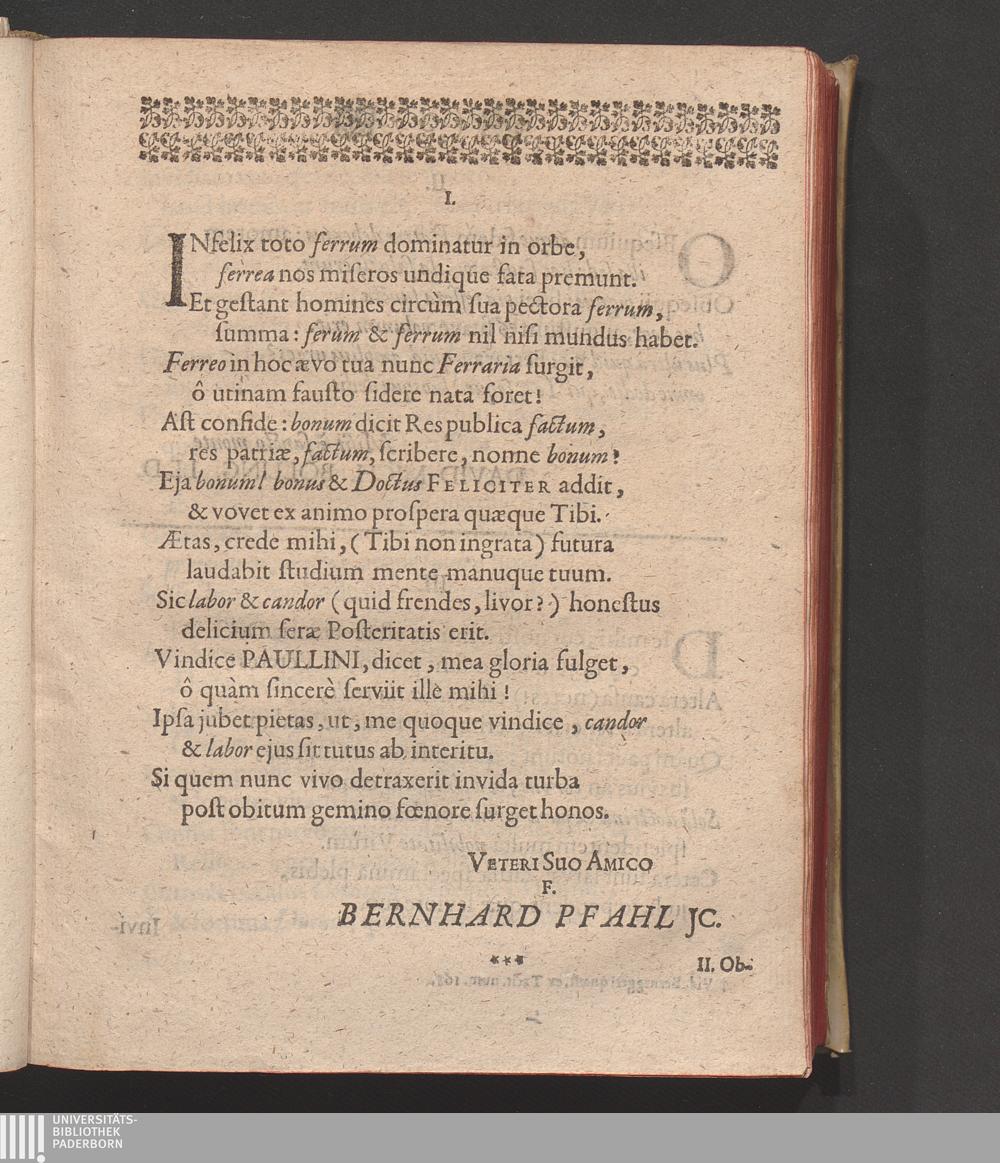 I.
INfelix toto ferrum dominatur in orbe,
ferrea nos miſeros undique fata premunt.
Et geſtant homines circùm ſua pectora ferrum,
ſumma: ferùm & ferrum nil niſi mundus habet.
Ferreo in hoc ævo tua nunc Ferraria ſurgit,
ô utinam fauſto ſidere nata foret!
Aſt confide: bonum dicit Res publica factum,
res patriæ, factum, ſcribere, nonne bonum?
Eja bonum! bonus & Doctus FELICITER addit,
& vovet ex animo proſpera quæque Tibi.
Ætas, crede mihi, (Tibi non ingrata) futura
laudabit ſtudium mente manuque tuum.
Sic labor & candor (quid frendes, livor?) honeſtus
delicium ſeræ Poſteritatis erit.
Vindice PAULLINI, dicet, mea gloria fulget,
ô quàm ſincerè ſerviit ille mihi!
Ipſa jubet pietas, ut, me quoque vindice, candor
& labor ejus ſit tutus ab interitu.
Si quem nunc vivo detraxerit invida turba
poſt obitum gemino fœnore ſurget honos.
VETERI SUO AMICO
F.
BERNHARD PFAHL JC.
***
II. Ob-
UNIVERSITÄTS-
BIBLIOTHEK
PADERBORN